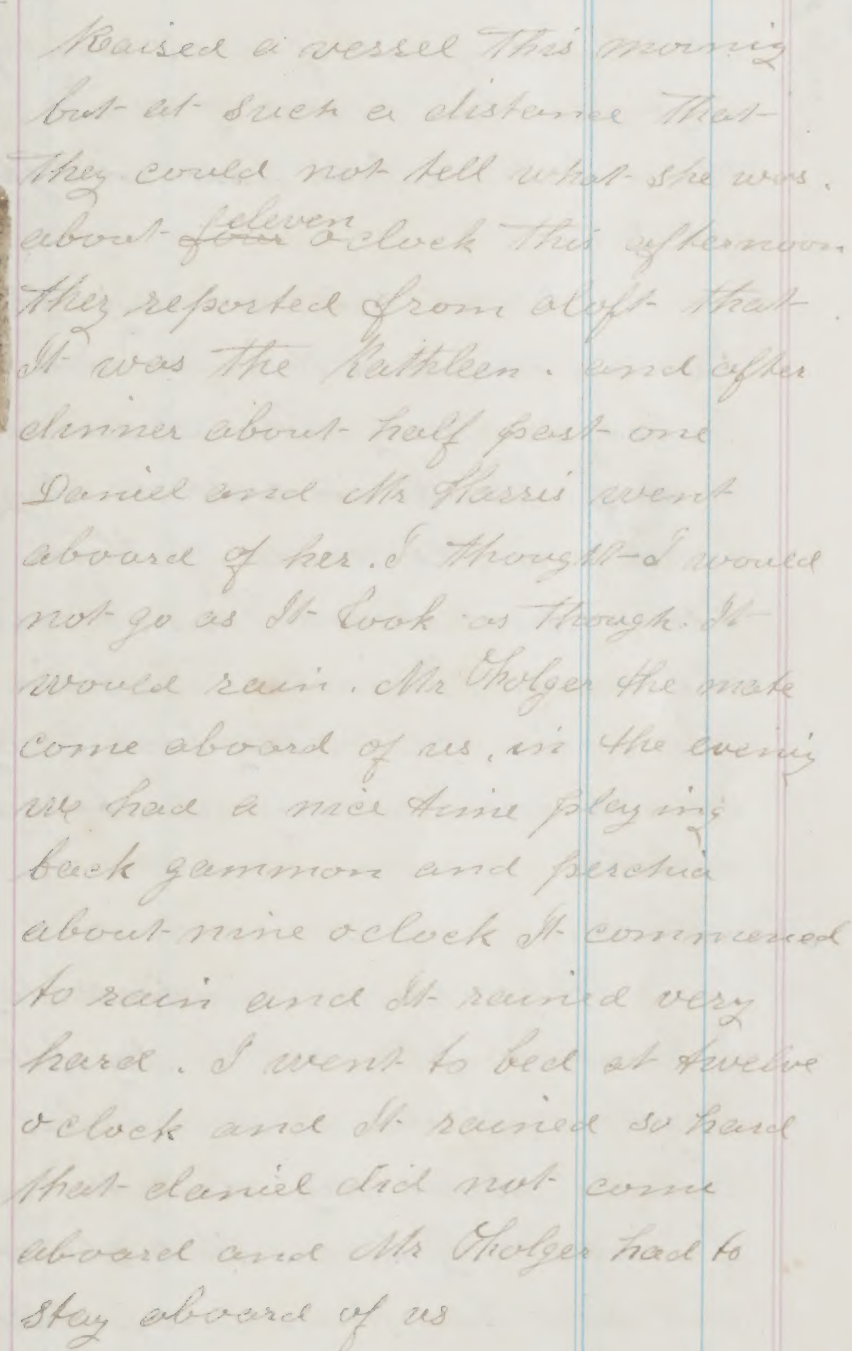 Raised a vessel this mornig
but at such a distance that
they could not tell what she was.
about four eleven oclock this afternoon
they reported from aloft that
It was the Kathleen. and after
dinner about half past one
Daniel and Mr Harris went
aboard of her. I thought I would
not go as It look as though It
would rain. Mr the mate
come aboard of us, in the evenig
we had a nice time playing
back gammon and perchia
about nine oclock It commenced
to rain and It rained very
hard. I went to bed at twelve
oclock and It rained so hard
that daniel did not come
aboard and Mr had to
stay aboard of us